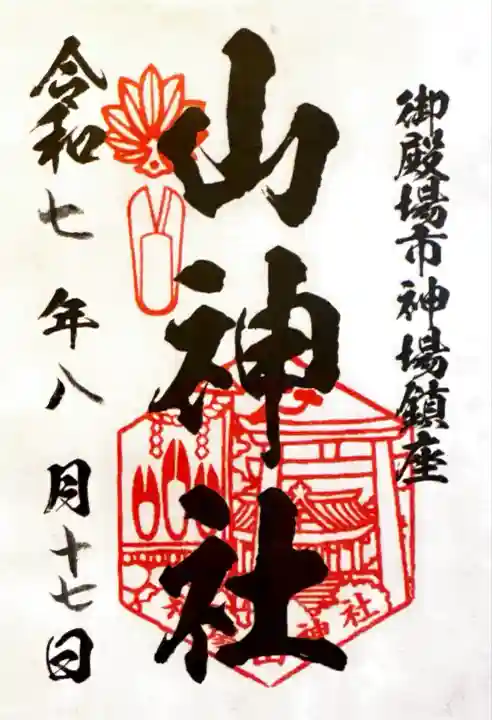 御殿場市神場鎮座
山神社
令和七年八月十七日
神社